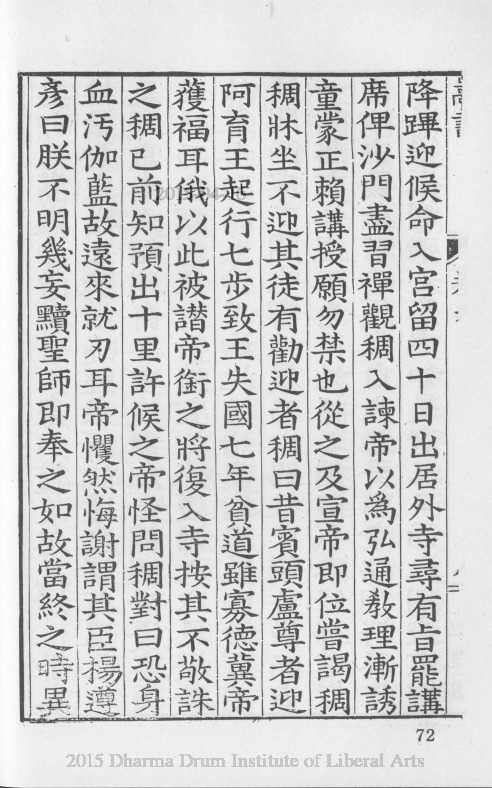 降蹕迎候命入宮留四十日出居外寺尋有旨罷講
席俾沙門盡習禪觀稠入諫帝以爲弘通敎理漸誘
童蒙正賴講授願勿禁也從之及宣帝即位嘗謁稠
稠牀坐不迎其徒有勸迎者稠曰昔賓頭盧尊者迎
阿育王起行七步致王失國七年貧道雖寡德冀帝
獲福耳俄以此被譖帝銜之將復入寺按其不敬誅
之稠已前知預出十里許候之帝怪問稠對曰恐身
血汚伽藍故遠來就刃耳帝懼然悔謝謂其臣楊遵
彥曰朕不明幾妄黷聖師即奉之如故當終之時異
72
2015 Dharma Drum Institute of Liberal Arts